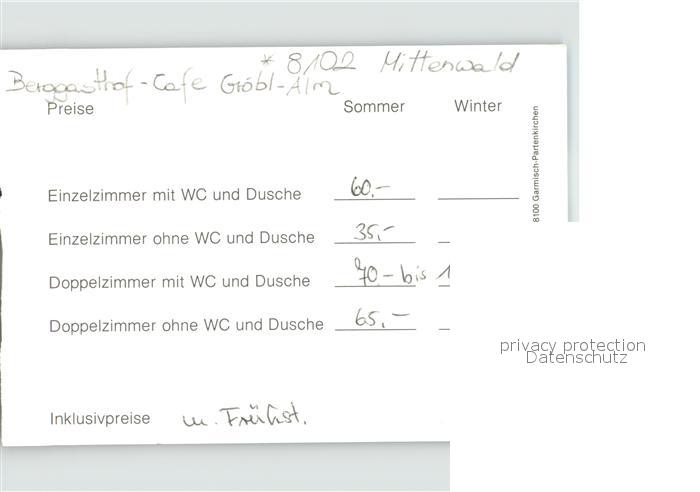 * 8102 Mittenwald
Berggasthof-Cafe Gröbl-Alm
Preise Sommer Winter
Einzelzimmer mit WC und Dusche 60,-
Einzelzimmer ohne WC und Dusche 35,-
Doppelzimmer mit WC und Dusche 70,- bis 1
Doppelzimmer ohne WC und Dusche 65,-
Inklusivpreise m. Frühst.
8100 Garmisch-Partenkirchen
privacy protection
Datenschutz